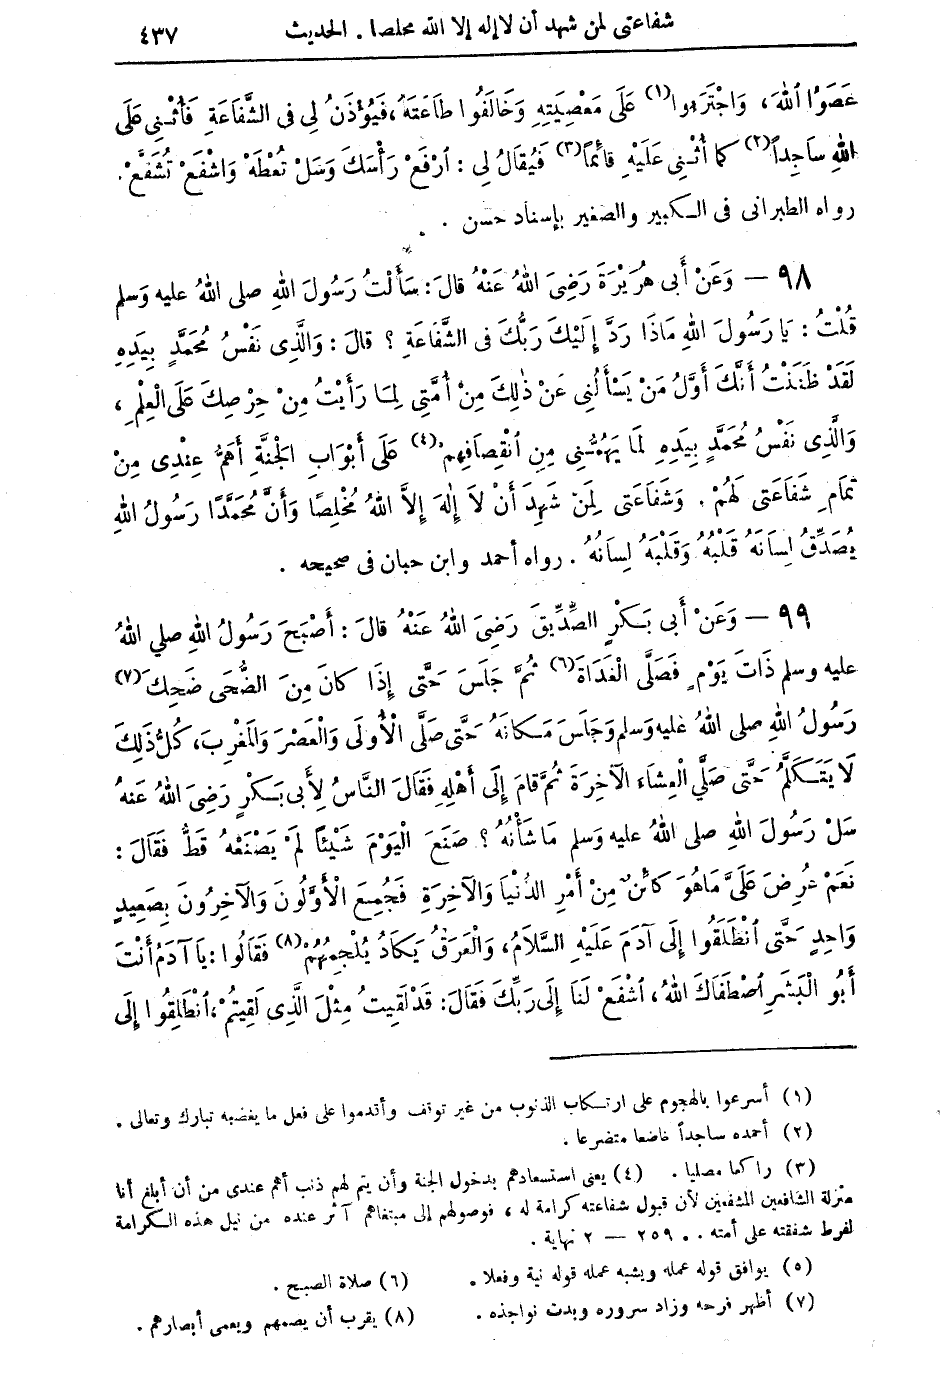 شفاعتى لمن شهد أن لا إله إلا الله مخلصا . الحديث ٤٣٧
عَصَوُا اللهَ، وَاجْتَرَءوا(١) عَلَى مَعْصِيَتِهِ وَخَالَفُوا طَاعَتَهُ، فَيُؤْذَنُ لِى فى الشَّفَاعَةِ فَأُثْنِى عَلَى
اللهِ سَاجِداً(٢) كما أُثْنِى عَلَيْهِ قائماً(٣) فَيُقَالُ لِى : ارْفَعْ رَأْسَكَ وَسَلْ تُعْطَهْ وَاشْفَعْ تُشَفَّعْ.
رواه الطبرانى فى الكبير والصغير بإسناد حسن .
٩٨ — وَعَنْ أَبى هُرَيْرَةَ رَضِىَ اللهُ عَنْهُ قالَ : سَأَلْتُ رَسُولَ اللهِ صلى اللهُ عليه وَسلم
قُلْتُ : يَا رَسُولَ اللهِ مَاذَا رَدَّ إِلَيْكَ رَبُّكَ فى الشَّفَاعَةِ ؟ قالَ : وَالَّذِى نَفْسُ مُحَمَّدٍ بِيَدِهِ
لَقَدْ ظَنَنْتُ أَنَّكَ أَوَّلُ مَنْ يَسْأَلُنِى عَنْ ذٰلِكَ مِنْ أُمَّتِى لِمَا رَأَيْتُ مِنْ حِرْصِكَ عَلَى الْعِلْمِ ،
وَالَّذِى نَفْسُ مُحَمَّدٍ بِيَدِهِ لَمَا يَهُمُّنِى مِنِ انْقِصَافِهِمْ(٤) عَلَى أَبْوَابِ الجَنَّةِ أَهَمُّ عِنْدِى مِنْ
تَمَامِ شَفَاعَتِى لَهُمْ . وَشَفَاعَتِى لِمَنْ شَهِدَ أَنْ لاَ إِلٰهَ إِلاَّ اللهُ مُخْلِصًا وَأَنَّ مُحَمَّدًا رَسُولُ اللهِ
يُصَدِّقُ لِسَانَهُ قَلْبُهُ وَقَلْبَهُ لِسَانُهُ . رواه أحمد وابن حبان فى صحيحه .
٩٩ — وَعَنْ أَبى بَكْرٍ الصِّدِّيقِ رَضِىَ اللهُ عَنْهُ قالَ : أَصْبَحَ رَسُولُ اللهِ صلى اللهُ
عليه وسلم ذَاتَ يَوْمٍ فَصَلَّى الْغَدَاةَ(٦) ثُمَّ جَلَسَ حَتَّى إِذَا كانَ مِنَ الضُّحَى ضَحِكَ(٧)
رَسُولُ اللهِ صلى اللهُ عليه وَسلم وَجَلَسَ مَكَانَهُ حَتَّى صَلَّى الْأُولَى وَالْعَصْرَ وَالمَغْرِبَ، كُلُّ ذٰلِكَ
لاَ يَتَكَلَّمُ حَتَّى صَلَّى الْعِشَاءَ الآخِرَةَ ثُمَّ قامَ إِلَى أَهْلِهِ فَقَالَ النَّاسُ لِأَبِى بَكْرٍ رَضِىَ اللهُ عَنْهُ
سَلْ رَسُولَ اللهِ صلى اللهُ عليه وَسلم مَا شَأْنُهُ ؟ صَنَعَ الْيَوْمَ شَيْئاً لَمْ يَصْنَعْهُ قَطُّ فَقَالَ :
نَعَمْ عُرِضَ عَلَىَّ مَا هُوَ كائِنٌ مِنْ أَمْرِ الدُّنْيَا وَالآخِرَةِ فَجُمِعَ الْأَوَّلُونَ وَالآخِرُونَ بِصَعِيدٍ
وَاحِدٍ حَتَّى انْطَلَقُوا إِلَى آدَمَ عَلَيْهِ السَّلاَمُ، وَالْعَرَقُ يَكَادُ يُلْجِمُهُمْ(٨) فَقَالُوا : يَا آدَمُ أَنْتَ
أَبُو الْبَشَرِ اصْطَفَاكَ اللهُ، اشْفَعْ لَنَا إِلَى رَبِّكَ فَقَالَ: قَدْ لَقِيتُ مِثْلَ الَّذِى لَقِيتُمْ، انْطَلِقُوا إِلَى
(١) أسرعوا بالهجوم على ارتكاب الذنوب من غير توقف وأقدموا على فعل ما يغضبه تبارك وتعالى .
(٢) أحمده ساجداً خاضعا متضرعا .
(٣) راكعا مصليا . (٤) يعنى استسعادهم بدخول الجنة وأن يتم لهم ذنب أهم عندى من أن أبلغ أنا
منزلة الشافعين المشفعين لأن قبول شفاعته كرامة له ، فوصولهم إلى مبتغاهم آثر عنده من نيل هذه الكرامة
لفرط شفقته على أمته . . ٢٥٩ — ٢ نهاية .
(٥) يوافق قوله عمله ويشبه عمله قوله نية وفعلا . (٦) صلاة الصبح .
(٧) أظهر فرحه وزاد سروره وبدت نواجذه . (٨) يقرب أن يصمهم ويعمى أبصارهم .